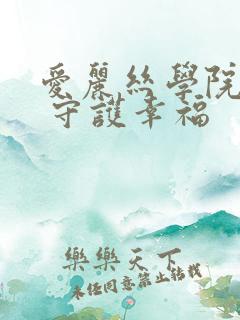 愛麗絲學院
守護幸福
樂樂天下
未經同意禁止轉載